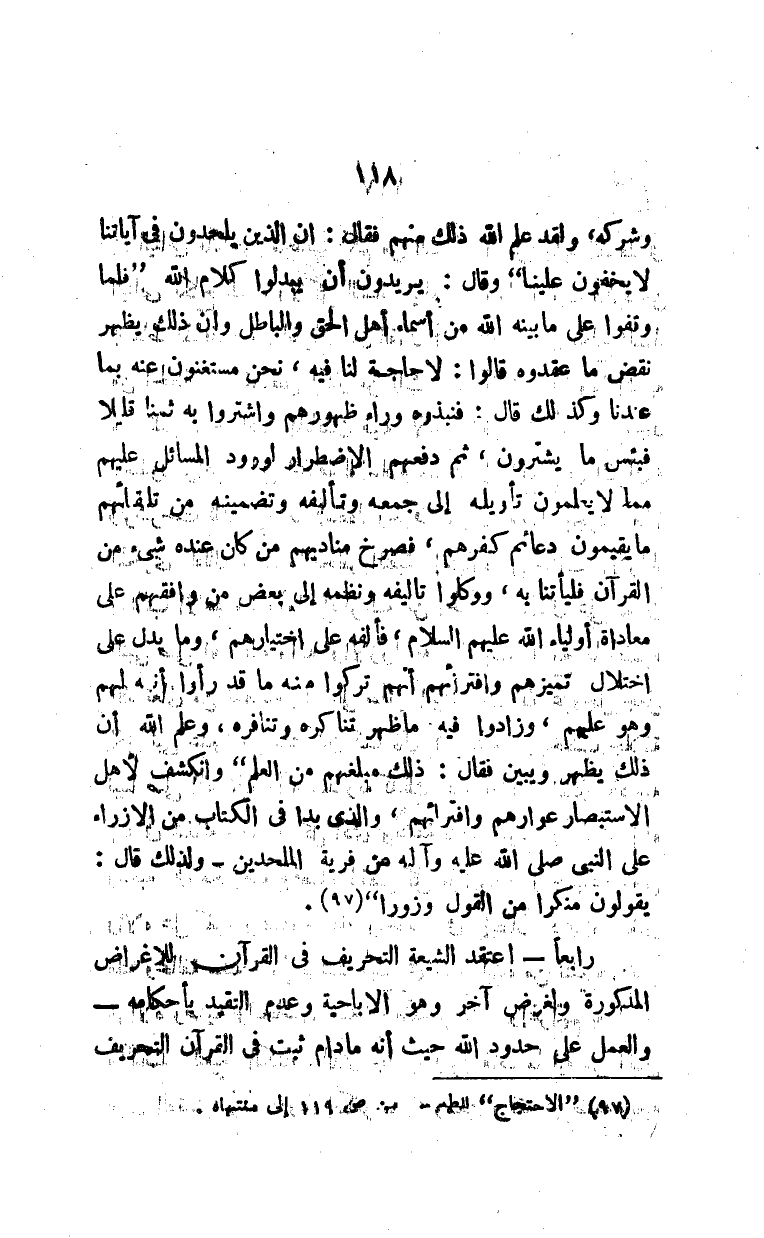 ١١٨
وشركه، ولقد علم الله ذلك منهم فقال : ان الذين يلحدون في آياتنا
لايخفون علينا“ وقال : يريدون أن يبدلوا كلام الله ”فلما
وقفوا على مابينه الله من أسماء أهل الحق والباطل وان ذلك يظهر
نقض ما عقدوه قالوا : لاحاجة لنا فيه ، نحن مستغنون عنه بما
عندنا وكذ لك قال : فنبذوه وراء ظهورهم واشتروا به ثمنا قليلا
فبئس ما يشترون ، ثم دفعهم الإضطرار لورود المسائل عليهم
مما لايعلمون تأويله إلى جمعه وتأليفه وتضمينه من تلقائهم
مايقيمون دعائم كفرهم ، فصرخ مناديهم من كان عنده شيء من
القرآن فليأتنا به ، ووكلوا تاليفه ونظمه إلى بعض من وافقهم على
معاداة أولياء الله عليهم السلام ، فألفه على اختيارهم ، وما يدل على
اختلال تميزهم وافترائهم أنهم تركوا منه ما قد رأوا أنه لهم
وهو عليهم ، وزادوا فيه ماظهر تناكره وتنافره ، وعلم الله أن
ذلك يظهر ويبين فقال : ذلك مبلغهم من العلم“ وانكشف لاهل
الاستبصار عوارهم وافترائهم ، والذى بدا فى الكتاب من الازراء
على النبى صلى الله عليه وآله من فرية الملحدين - ولذلك قال :
يقولون منكرا من القول وزورا“(٩٧) .
رابعاً — اعتقد الشيعة التحريف فى القرآن للاغراض
المذكورة ولغرض آخر وهو الاباحية وعدم التقيد بأحكامه —
والعمل على حدود الله حيث أنه مادام ثبت فى القرآن التحريف
(٩٧) ”الاحتجاج“ للطبرسى ص ١١٩ إلى منتهاه .